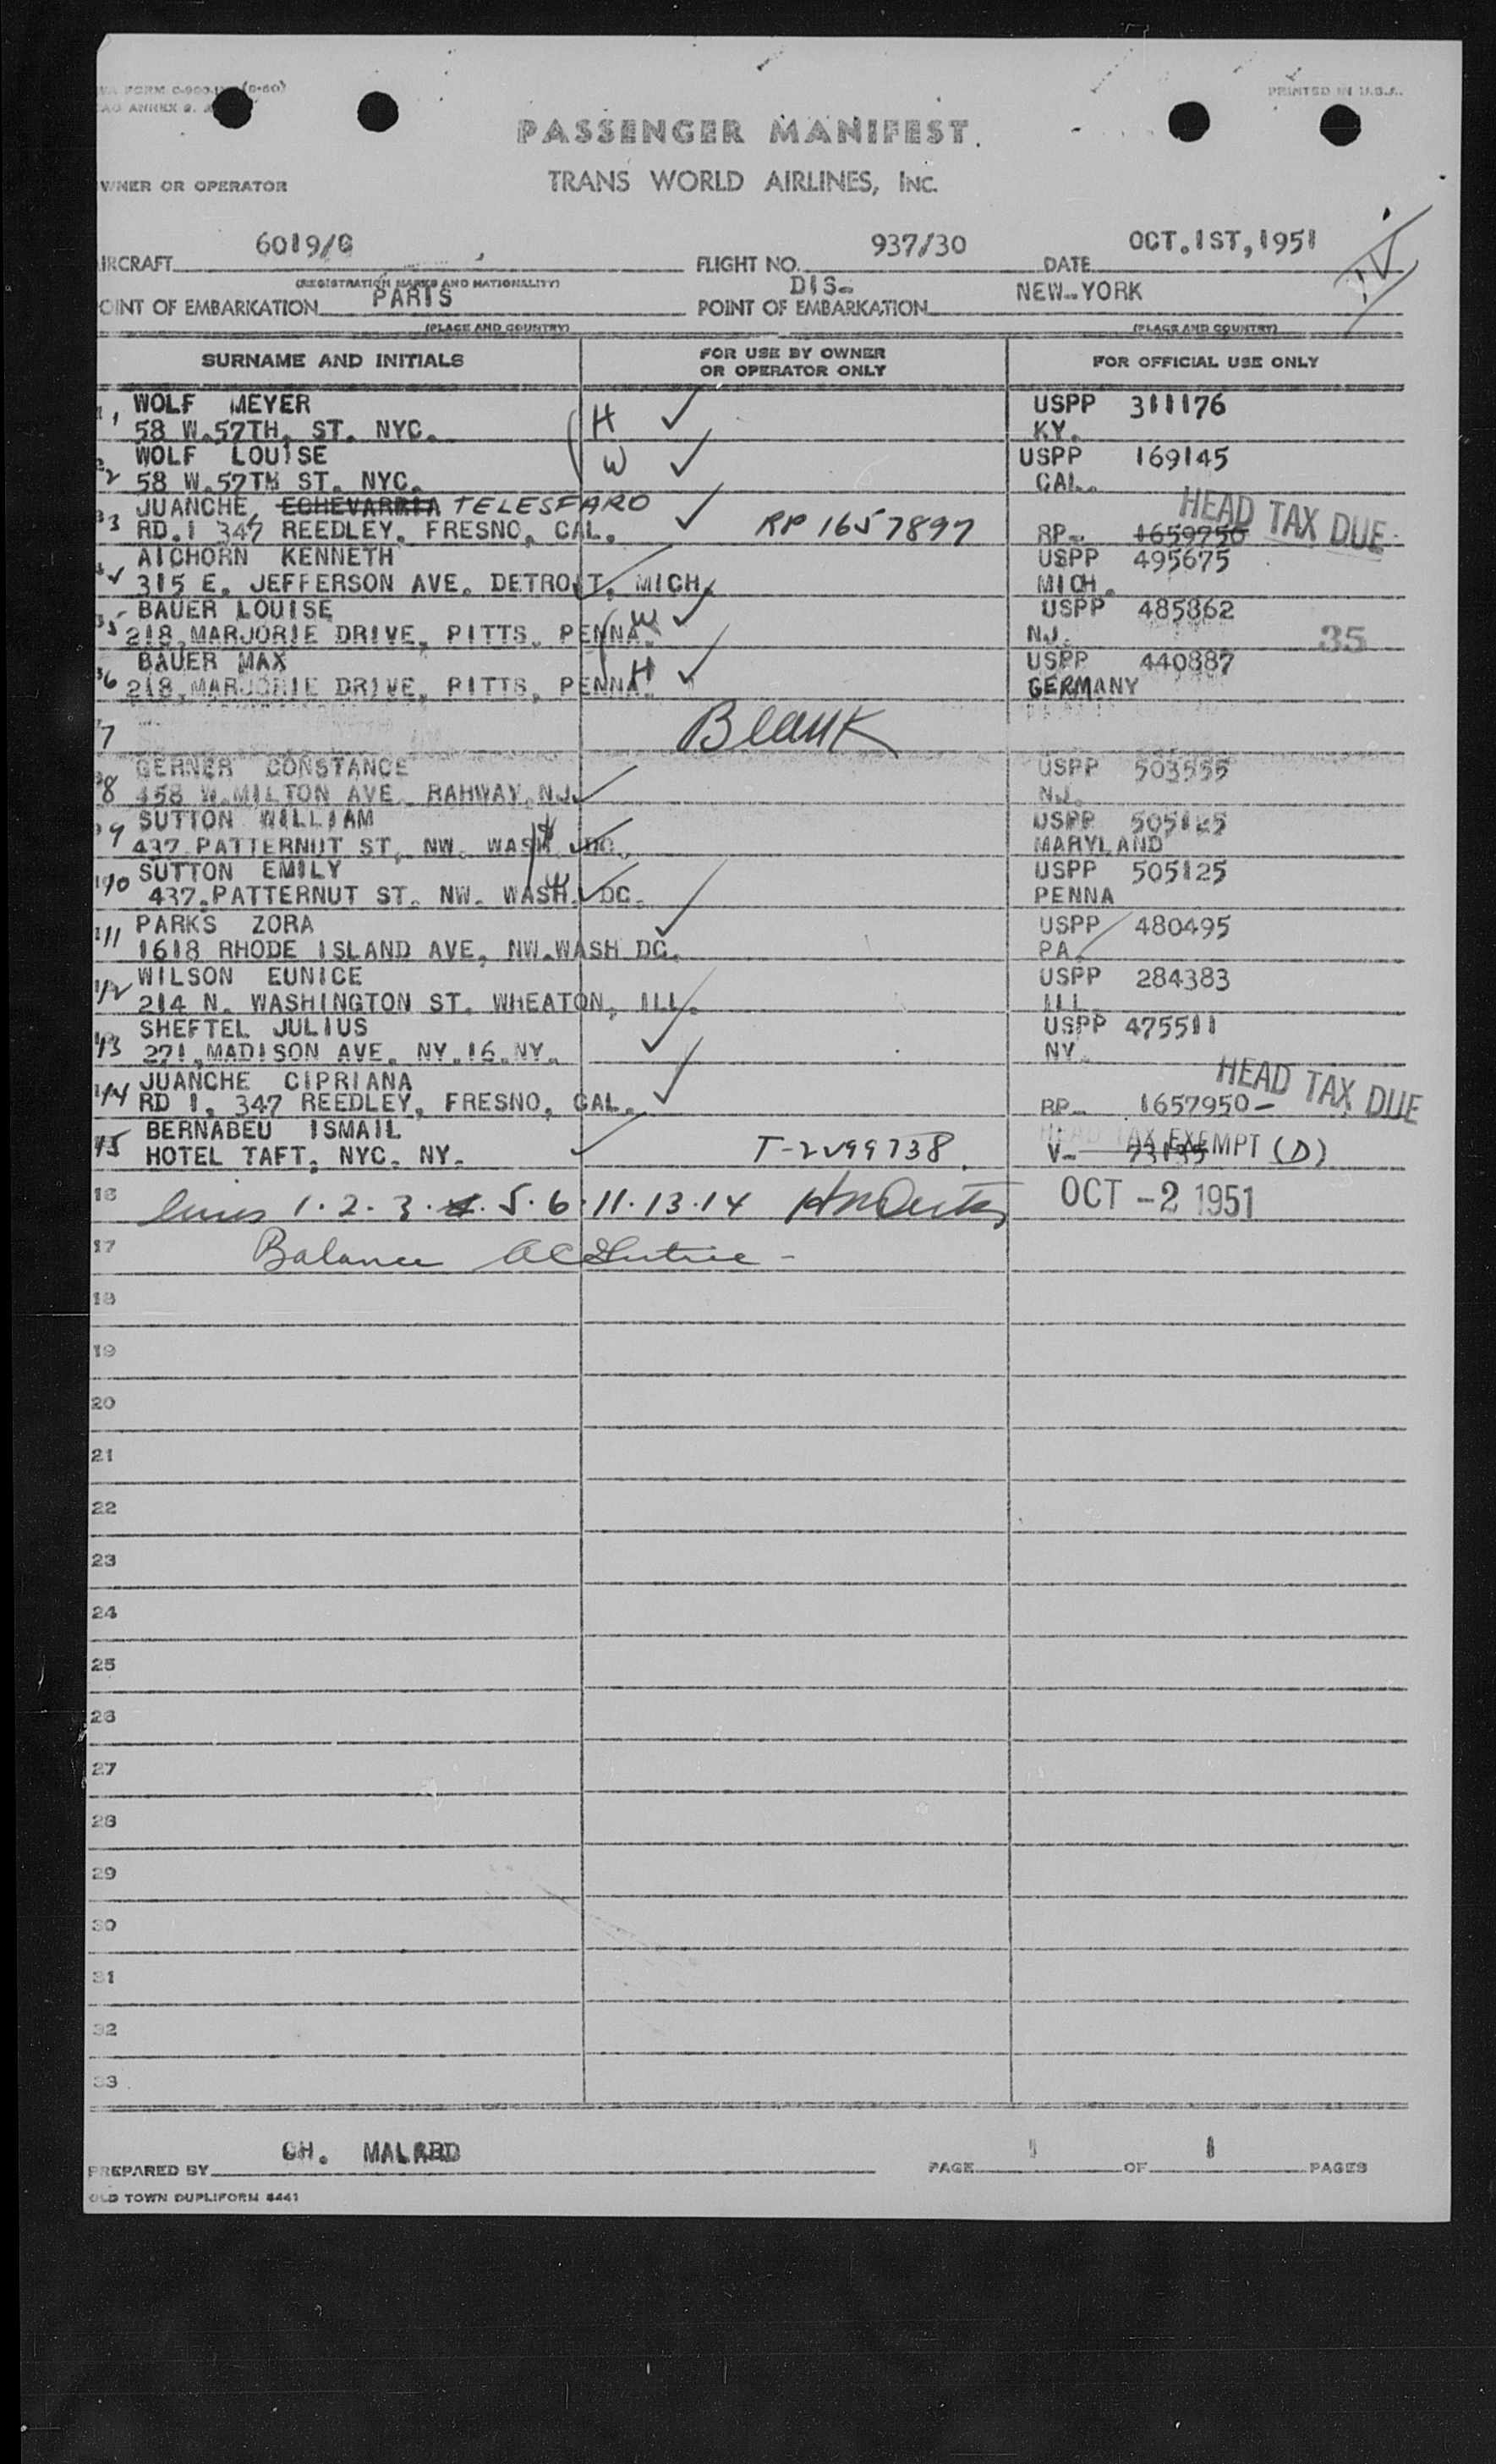 WA FORM C-900-1 (9-50)
CAO ANNEX 9.
PRINTED IN U.S.A.
PASSENGER MANIFEST.
WNER OR OPERATOR
TRANS WORLD AIRLINES, INC.
IRCRAFT 6019/G FLIGHT NO. 937/30 DATE OCT.1ST,1951
(REGISTRATION MARKS AND NATIONALITY)
OINT OF EMBARKATION PARIS DIS- POINT OF EMBARKATION NEW-YORK
(PLACE AND COUNTRY) (PLACE AND COUNTRY)
SURNAME AND INITIALS FOR USE BY OWNER OR OPERATOR ONLY FOR OFFICIAL USE ONLY
1 WOLF MEYER H USPP 311176
58 W.57TH. ST. NYC. KY.
2 WOLF LOUISE W USPP 169145
58 W.57TH ST. NYC. CAL.
3 JUANCHE, ECHEVARRIA TELESFARO HEAD TAX DUE
RD.1 347 REEDLEY. FRESNO, CAL. RP 1657897 RP- 1659750
AICHORN KENNETH USPP 495675
315 E. JEFFERSON AVE. DETROIT, MICH. MICH.
5 BAUER LOUISE W USPP 485862
218,MARJORIE DRIVE, PITTS. PENNA. NJ. 35
6 BAUER MAX H USPP 440887
218,MARJORIE DRIVE, PITTS, PENNA. GERMANY
7 Blank
8 GERNER CONSTANCE USPP 503555
458 W.MILTON AVE. RAHWAY,NJ. NJ.
9 SUTTON WILLIAM H USPP 505125
437 PATTERNUT ST, NW. WASH. DC. MARYLAND
10 SUTTON EMILY W USPP 505125
437.PATTERNUT ST. NW. WASH. DC. PENNA
11 PARKS ZORA USPP 480495
1618 RHODE ISLAND AVE, NW.WASH DC. PA.
12 WILSON EUNICE USPP 284383
214 N. WASHINGTON ST. WHEATON, ILL. ILL.
13 SHEFTEL JULIUS USPP 475511
271,MADISON AVE. NY.16.NY. NY.
14 JUANCHE CIPRIANA HEAD TAX DUE
RD 1, 347 REEDLEY, FRESNO, CAL. RP- 1657950-
15 BERNABEU ISMAIL HEAD TAX EXEMPT (D)
HOTEL TAFT, NYC. NY. T-2499738. V- 73195
16 lines 1.2.3.4.5.6.11.13.14 OCT -2 1951
17 Balance
18
19
20
21
22
23
24
25
26
27
28
29
30
31
32
33
PREPARED BY CH. MALARD PAGE 1 OF 1 PAGES
OLD TOWN DUPLIFORM 4441